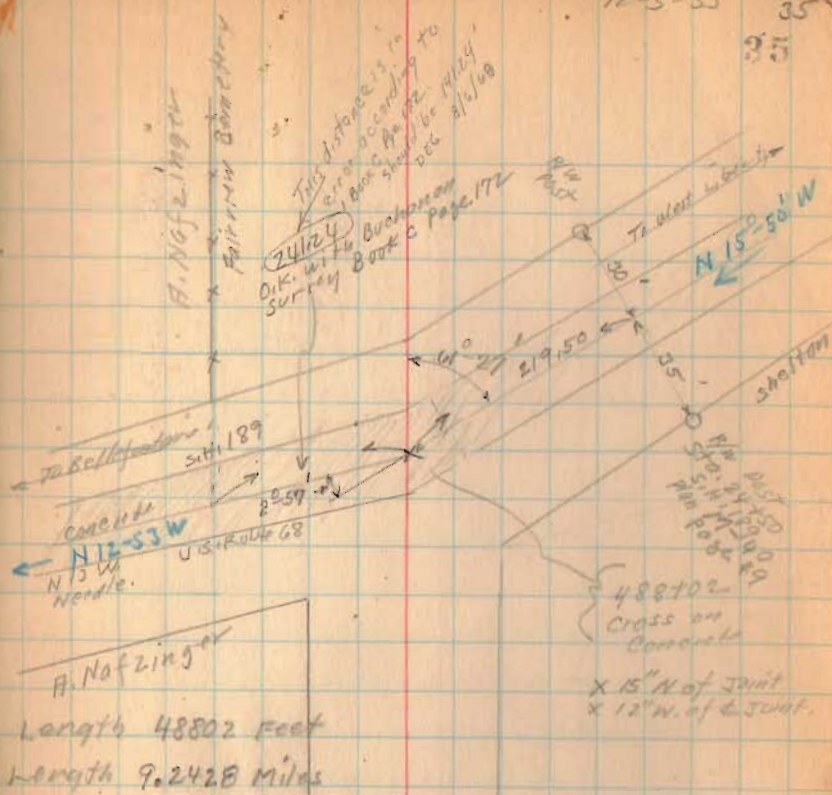 12-5-33 35
35
A. Nafzinger
Fairview Cemetery
This distance is in
error according to
Book C Pg. 172.
should be 141.24'
DEG 3/6/68
241.24
O.K. with Buchanan
Survey Book C Page 172
R/W
Post
To West Liberty
N 15°-50' W
30'
219.50
35'
Shelton
To Bellefontaine
S.H. 189
2°57'
Concrete
N 12-53 W
U.S. Route 68
N 13 W.
Needle.
R/W Post
Sta. 24+50
S.H. 189
Page 89
488+02
Cross on
Concrete
X 15" N of Joint
X 12" W. of ₵ Joint.
A. Nafzinger
Length 48802 Feet
Length 9.2428 Miles